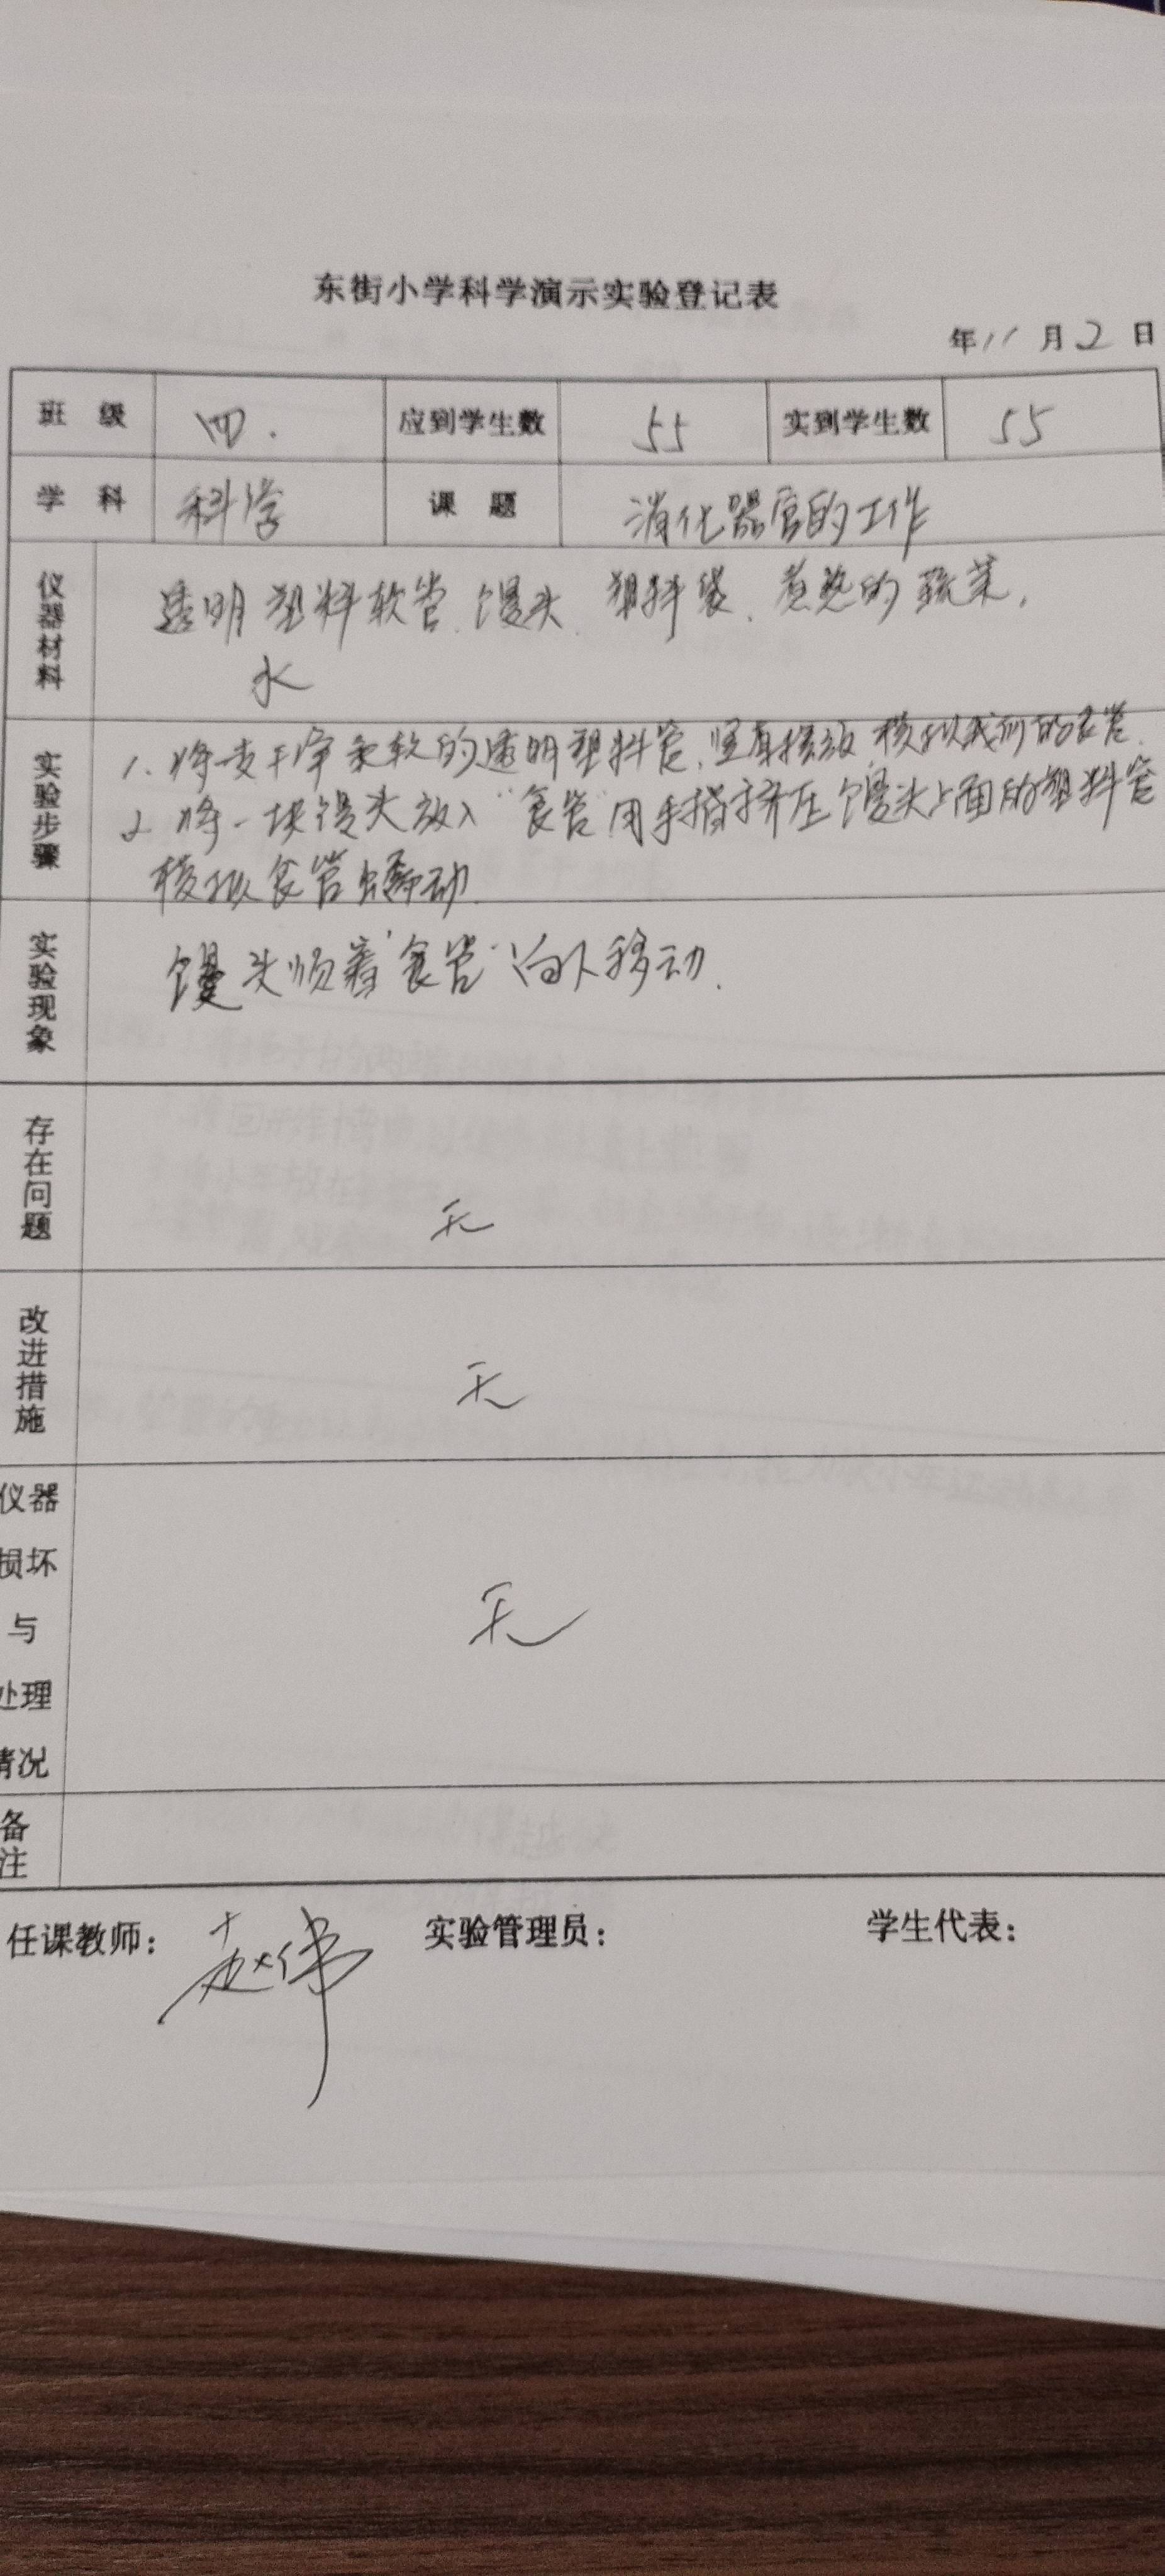 东街小学科学演示实验登记表
年11月2日
班级 四. 应到学生数 55 实到学生数 55
学科 科学 课题 消化器官的工作
仪器材料 透明塑料软管、馒头、塑料袋、煮熟的蔬菜,
水
实验步骤 1. 将一支干净柔软的透明塑料管,竖直摆放,模拟我们的食管.
2 将一块馒头放入“食管”用手指挤压馒头上面的塑料管
模拟食管蠕动.
实验现象 馒头顺着“食管”向下移动.
存在问题 无
改进措施 无
仪器损坏与处理情况 无
备注
任课教师: 赵伟 实验管理员: 学生代表: